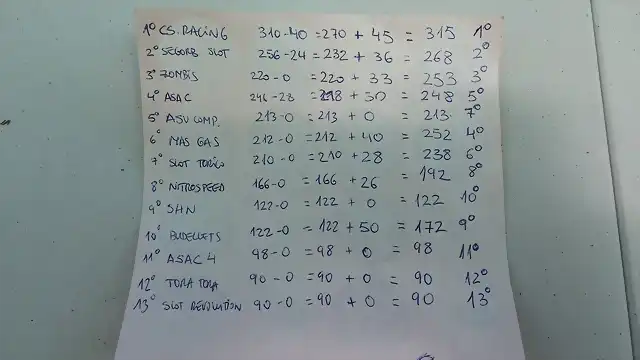 1º CS. RACING 310-40 = 270 + 45 = 315 1º
2º SEGORB SLOT 256-24 = 232 + 36 = 268 2º
3º ZOMBIS 220-0 = 220 + 33 = 253 3º
4º ASAC 246-28 = 218 + 30 = 248 5º
5º ASV COMP. 213-0 = 213 + 0 = 213. 7º
6º MAS GAS 212-0 = 212 + 40 = 252 4º
7º SLOT 210-0 = 210 + 28 = 238 6º
8º NITROSPEED 166-0 = 166 + 26 = 192 8º
9º SHN 122-0 = 122 + 0 = 122 10º
10º 122-0 = 122 + 50 = 172 9º
11º ASAC 4 98-0 = 98 + 0 = 98 11º
12º TORA TORA 90-0 = 90 + 0 = 90 12º
13º SLOT REVOLUTION 90-0 = 90 + 0 = 90 13º